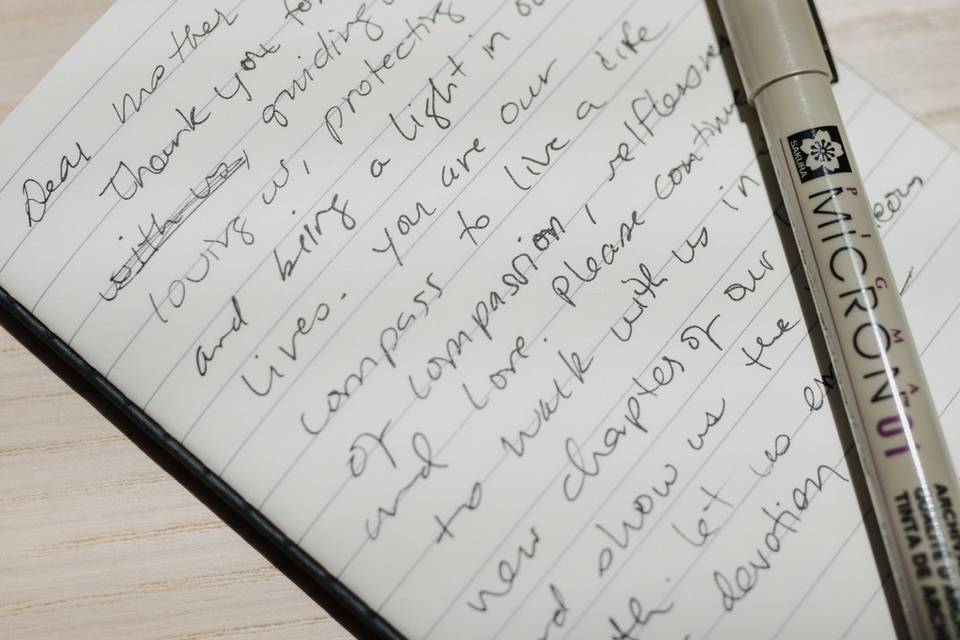 Dear mother
Thank you for guiding
with us,
loving us, protecting
and being a light in our
lives. You are our
compass to live a life
of compassion, selflessness
and love. Please continue
to walk with us in
new chapters of our
and show us the
let us
devotion
SAKURA
PIGMA
MICRON 01
TINTA DE